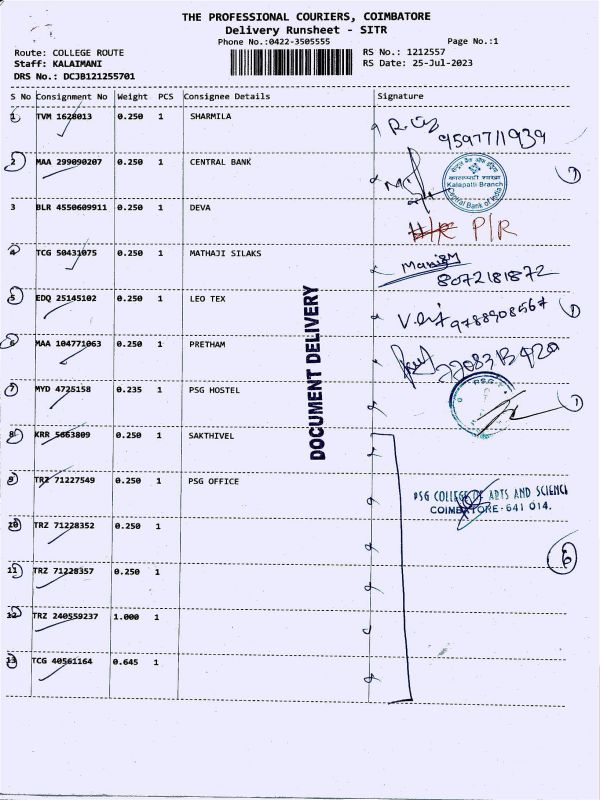 THE PROFESSIONAL COURIERS, COIMBATORE
Delivery Runsheet - SITR
Phone No.:0422-3505555 Page No.:1
Route: COLLEGE ROUTE RS No.: 1212557
Staff: KALAIMANI RS Date: 25-Jul-2023
DRS No.: DCJB121255701
S No Consignment No Weight PCS Consignee Details Signature
1 TVM 1628013 0.250 1 SHARMILA
9597711939
2 MAA 299090207 0.250 1 CENTRAL BANK
सेन्ट्रल बैंक ऑफ इंडिया
कालापट्टी शाखा
Kalapatti Branch
Central Bank of India
3 BLR 4550609911 0.250 1 DEVA
P/R
4 TCG 50431075 0.250 1 MATHAJI SILAKS
8072181872
5 EDQ 25145102 0.250 1 LEO TEX
9788908567
6 MAA 104771063 0.250 1 PRETHAM
7 MYD 4725158 0.235 1 PSG HOSTEL
8 KRR 5663809 0.250 1 SAKTHIVEL
9 TRZ 71227549 0.250 1 PSG OFFICE
PSG COLLEGE OF ARTS AND SCIENCE
COIMBATORE-641 014.
10 TRZ 71228352 0.250 1
6
11 TRZ 71228357 0.250 1
12 TRZ 240559237 1.000 1
13 TCG 40561164 0.645 1
DOCUMENT DELIVERY